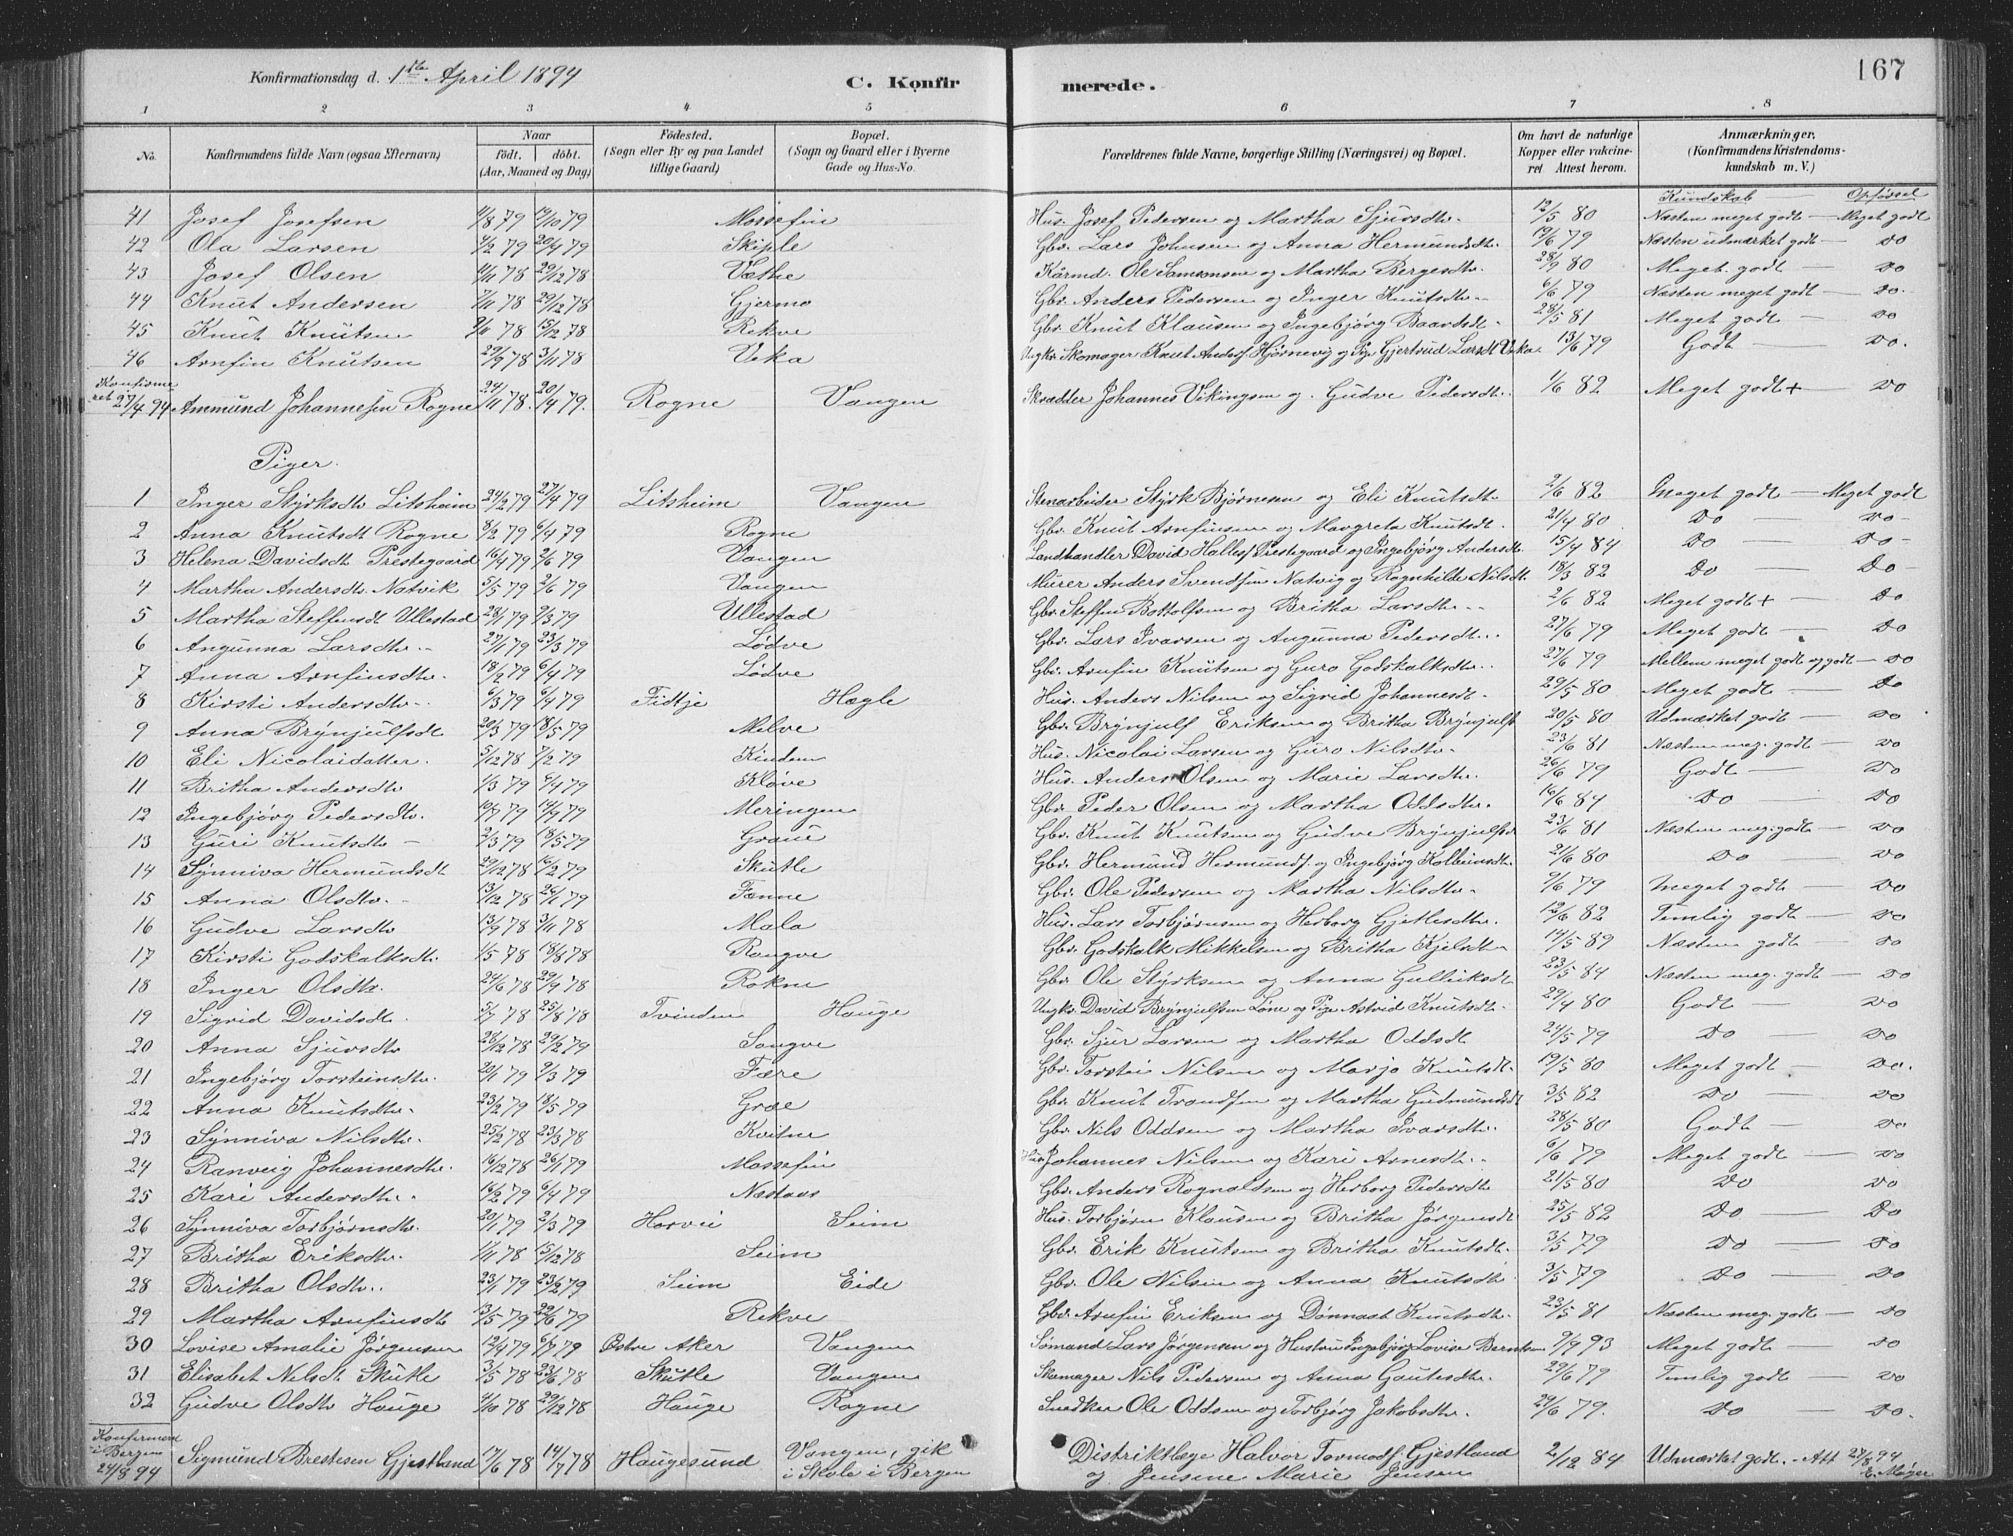 Konfirmationsdag d. 1ste April 1894 C. Konfirmerede. 167
1 2 3 4 5 6 7 8
No. Konfirmandens fulde Navn (ogsaa Efternavn) Naar født. døbt. (Aar, Maaned og Dag) Fødested. (Sogn eller By og paa Landet tillige Gaard) Bopæl. (Sogn og Gaard eller i Byerne Gade og Hus-No. Forældrenes fulde Navne, borgerlige Stilling (Næringsvei) og Bopæl. Om havt de naturlige Kopper eller vaccineret Attest herom. Anmærkninger, (Konfirmandens Kristendomskundskab m. V.)
Kundskab — Opførsel
41 Josef Josefsen 11/8 79 12/10 79 Mossefin Hus. Josef Pedersen og Martha Sjursdtr. 12/5 80 Næsten meget godt — Meget godt
42 Ola Larsen 4/2 79 20/4 79 Skiple Gbr. Lars Johnsen og Anna Hermundsdtr. 19/6 79 Næsten udmærket godt — Do
43 Josef Olsen 11/11 78 29/12 78 Væthe Kårmd. Ole Samsonsen og Martha Bergesdtr. 28/9 80 Meget godt — Do
44 Knut Andersen 7/11 78 29/12 78 Gjermo Gbr. Anders Pedersen og Inger Knutsdtr. 6/6 79 Næsten meget godt — Do
45 Knut Knutsen 9/11 78 15/12 78 Rekve Gbr. Knut Klausen og Ingebjørg Baardsdt. 28/5 81 Meget godt — Do
46 Arnfin Knutsen 29/9 78 3/11 78 Veka Ungkr. Skomager Knut Andersf Hjørnevig og Pige Gjertrud Larsdt Veka 13/6 79 Godt — Do.
Konfirmeret 27/4 94 Ammund Johannesen Rogne 24/11 78. 20/14 79. Rogne Vangen Skrædder Johannes Vikingsen og Gudve Pedersdtr. 1/6 82 Meget godt + Do
Piger.
1 Inger Styrksdtr Litsheim 24/2 79 27/4 79 Litsheim Vangen Stenarbeider Styrk Bjørnesen og Eli Knutsdtr 2/6 82 Meget godt — Meget godt
2 Anna Knutsdt Rogne 8/2 79 6/4 79 Rogne Gbr. Knut Arnfinsen og Margreta Knutsdt. 21/4 80 Do — Do
3 Helena Davidsdt Prestegaard 16/4 79 2/6 79 Vangen Landhandler David Hallesf Prestegaard og Ingebjørg Andersdt. 15/4 84 Do — Do
4 Martha Andersdtr Natvik 5/5 79 2/6 79 Vangen Murer Anders Svendsen Natvig og Ragnhilde Nilsdt. 18/3 82 Do — Do
5 Martha Steffensdt Ullestad 28/1 79 9/3 79 Ullestad Gbr. Steffen Bottolfsen og Britha Larsdtr. 2/6 82 Meget godt + — Do
6 Angunna Larsdtr. 27/1 79 23/3 79 Lødve Gbr. Lars Ivarsen og Angunna Pedersdtr. 27/6 79 Meget godt — Do
7 Anna Arnfinsdtr. 18/2 79 6/4 79 Lødve Gbr. Arnfin Knutsen og Guro Godskalksdtr. 27/6 79 Mellem meget godt og godt — Do
8 Kirsti Andersdtr. 6/3 79 6/4 79 Fidtje Hægle Hus. Anders Nilsen og Sigrid Johannesdt. 29/5 80 Meget godt — Do
9 Anna Brynjulfsdt 20/3 79 18/5 79 Melve Gbr. Brynjulf Eriksen og Britha Brynjulfsd 20/5 80 Udmærket godt — Do
10 Eli Nicolaidatter. 5/12 78 7/2 79 Kinden Hus. Nicolai Larsen og Guro Nilsdtr. 23/6 81 Næsten meg. godt — Do
11 Britha Andersdtr 1/3 79 6/4 79 Kløve Hus. Anders Olsen og Marie Larsdtr. 26/6 79 Godt — Do
12 Ingebjørg Pedersdtr. 10/7 79 14/9 79 Meringen Gbr. Peder Olsen og Martha Oddsdtr. 16/6 84 Do — Do
13 Guri Knutsdtr 2/3 79 18/5 79 Graue Gbr. Knut Knutsen og Gudve Brynjulfsd 23/6 81 Næsten meg. godt — Do
14 Synniva Hermundsdt 29/12 78 16/2 79 Skutle Gbr. Hermund Hermundf. og Ingebjørg Kolbeinsdt. 21/6 80 Do — Do
15 Anna Olsdtr. 13/12 78 26/1 79 Fenne Gbr. Ole Pedersen og Martha Nilsdtr. 9/6 79 Meget godt — Do
16 Gudve Larsdtr 13/9 78 3/11 78 Mala Hus. Lars Torbjørnsen og Herborg Gjetlesdtr. 12/6 82 Temlig godt — Do
17 Kirsti Godskalksdt. 1/5 78 18/8 78 Rongve Gbr. Godskalk Mikkelsen og Britha Kjelsdtr 14/5 89 Næsten godt — Do
18 Inger Olsdtr. 24/6 78 29/9 78 Rokne Gbr. Ole Styrksen og Anna Gulliksdt. 23/5 84 Næsten meg. godt — Do
19 Sigrid Davidsdt. 5/7 78 25/8 78 Tvinden Hauge Ungkr. David Brynjulfsen Løne og Pige Astrid Knutsdt. 29/4 80 Godt — Do
20 Anna Sjursdtr 28/12 78 29/2 79 Songve Gbr. Sjur Larsen og Martha Oddsdt 24/5 79 Do — Do
21 Ingebjørg Torsteinsdtr. 20/1 79 9/3 79 Fære Gbr. Torstei Nilsen og Marjo Knutsdt. 19/5 80 Meget godt — Do.
22 Anna Knutsdtr. 23/2 79 18/5 79 Græe Gbr. Knut Trondsen og Martha Gudmundsdt 3/5 82 Do — Do
23 Synniva Nilsdtr. 25/2 78 23/3 78 Kvitne Gbr. Nils Oddsen og Martha Ivarsdtr. 28/5 80 Godt — Do
24 Ranveig Johannesdtr. 16/12 78 26/1 79 Mossefin Hus. Johannes Nilsen og Kari Arnesdtr. 6/6 79 Meget godt — Do
25 Kari Andersdtr. 16/2 79 6/4 79 Næstaas Gbr. Anders Rognaldsen og Herborg Pedersdtr 21/5 80 Do Do
26 Synniva Torbjørnsdtr. 20/1 79 2/3 79 Horvei Seim Hus. Torbjørn Klausen og Britha Jørgensdt 25/5 82 Do — Do
27 Britha Eriksdtr. 1/11 78 15/12 78 Seim Gbr. Erik Knutsen og Britha Knutsdt. 3/5 79 Do — Do
28 Britha Olsdtr. 23/1 79 23/2 79 Seim Eide Gbr. Ole Nilsen og Anna Knutsdtr. 3/5 79 Do — Do
29 Martha Arnfinsdt 13/5 79 29/6 79 Rekve Gbr. Arnfin Eriksen og Dønnast Knutsdtr. 23/5 81 Næsten meg. godt — Do
30 Lovise Amalie Jørgensen 12/4 79 6/7 79 Østre Aker Vangen Sømand Lars Jørgensen og Hustru Ingebjørg Lovise Berntsen 9/9 93 Meget godt — Do
31 Elisabet Nilsdt Skutle 3/5 78 23/6 78 Skutle Vangen Skomager Nils Pedersen og Anna Gautesdtr. 29/6 79 Temlig godt — Do
32 Gudve Olsdtr Hauge 4/10 78 29/12 78 Hauge Rogne Snedker Ole Oddsen og Torbjørg Jakobsdtr. 24/6 79. Do — Do.
Konfirmeret i Bergen 24/8 94 Sigmund Brestesen Gjestland 17/6 78 14/7 78 Haugesund Vangen, gik i Skole i Bergen Distriktlæge Halvor Tormodf. Gjestland og Jensine Marie Jensen 2/12 84 Udmærket godt. - Att 27/8 94 E. Møger